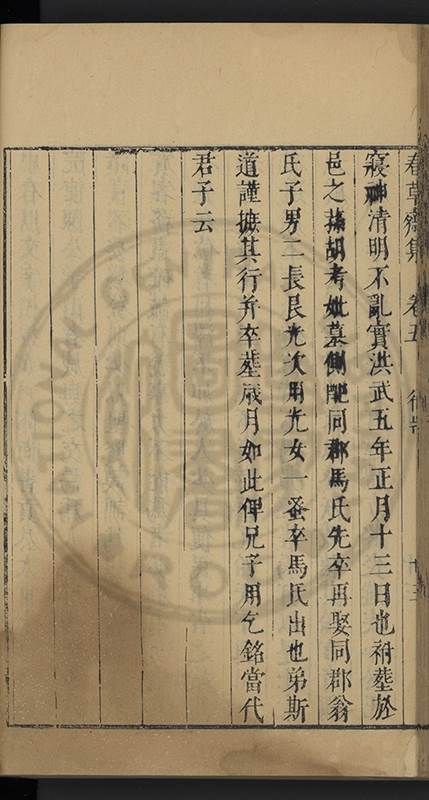 春草齋集 卷五 行狀 十三
寢神清明不亂實洪武五年正月十三日也祔塟於
邑之蓀胡考妣墓側配同郡馬氏先卒再娶同郡翁
氏子男二長艮光次用光女一蚤卒馬氏出也弟斯
道謹摭其行并卒塟歲月如此俾兄子用乞銘當代
君子云